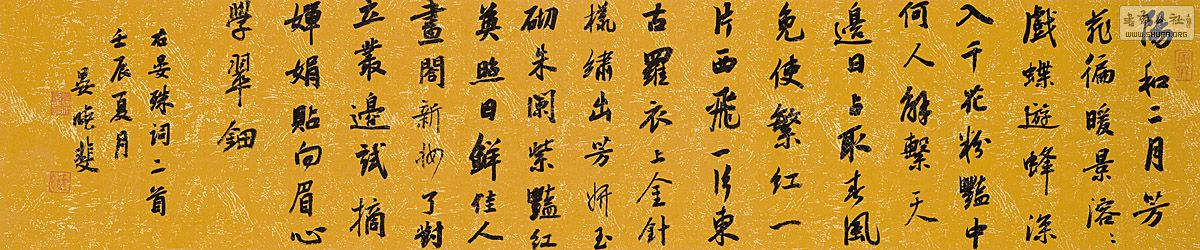 陽和二月芳
菲徧暖景溶〻
戲蝶遊蜂深
入千花粉豔中
何人解繫天
邊日占取春風
免使繁紅一
片西飛一片東
古羅衣上金針
樣繡出芳妍玉
砌朱闌紫豔紅
英照日鮮佳人
畫閣新妝了對
立叢邊試摘
嬋娟貼向眉心
學翠鈿
右晏殊詞二首
壬辰夏月
晏曉斐
WWW.SHUFA.ORG